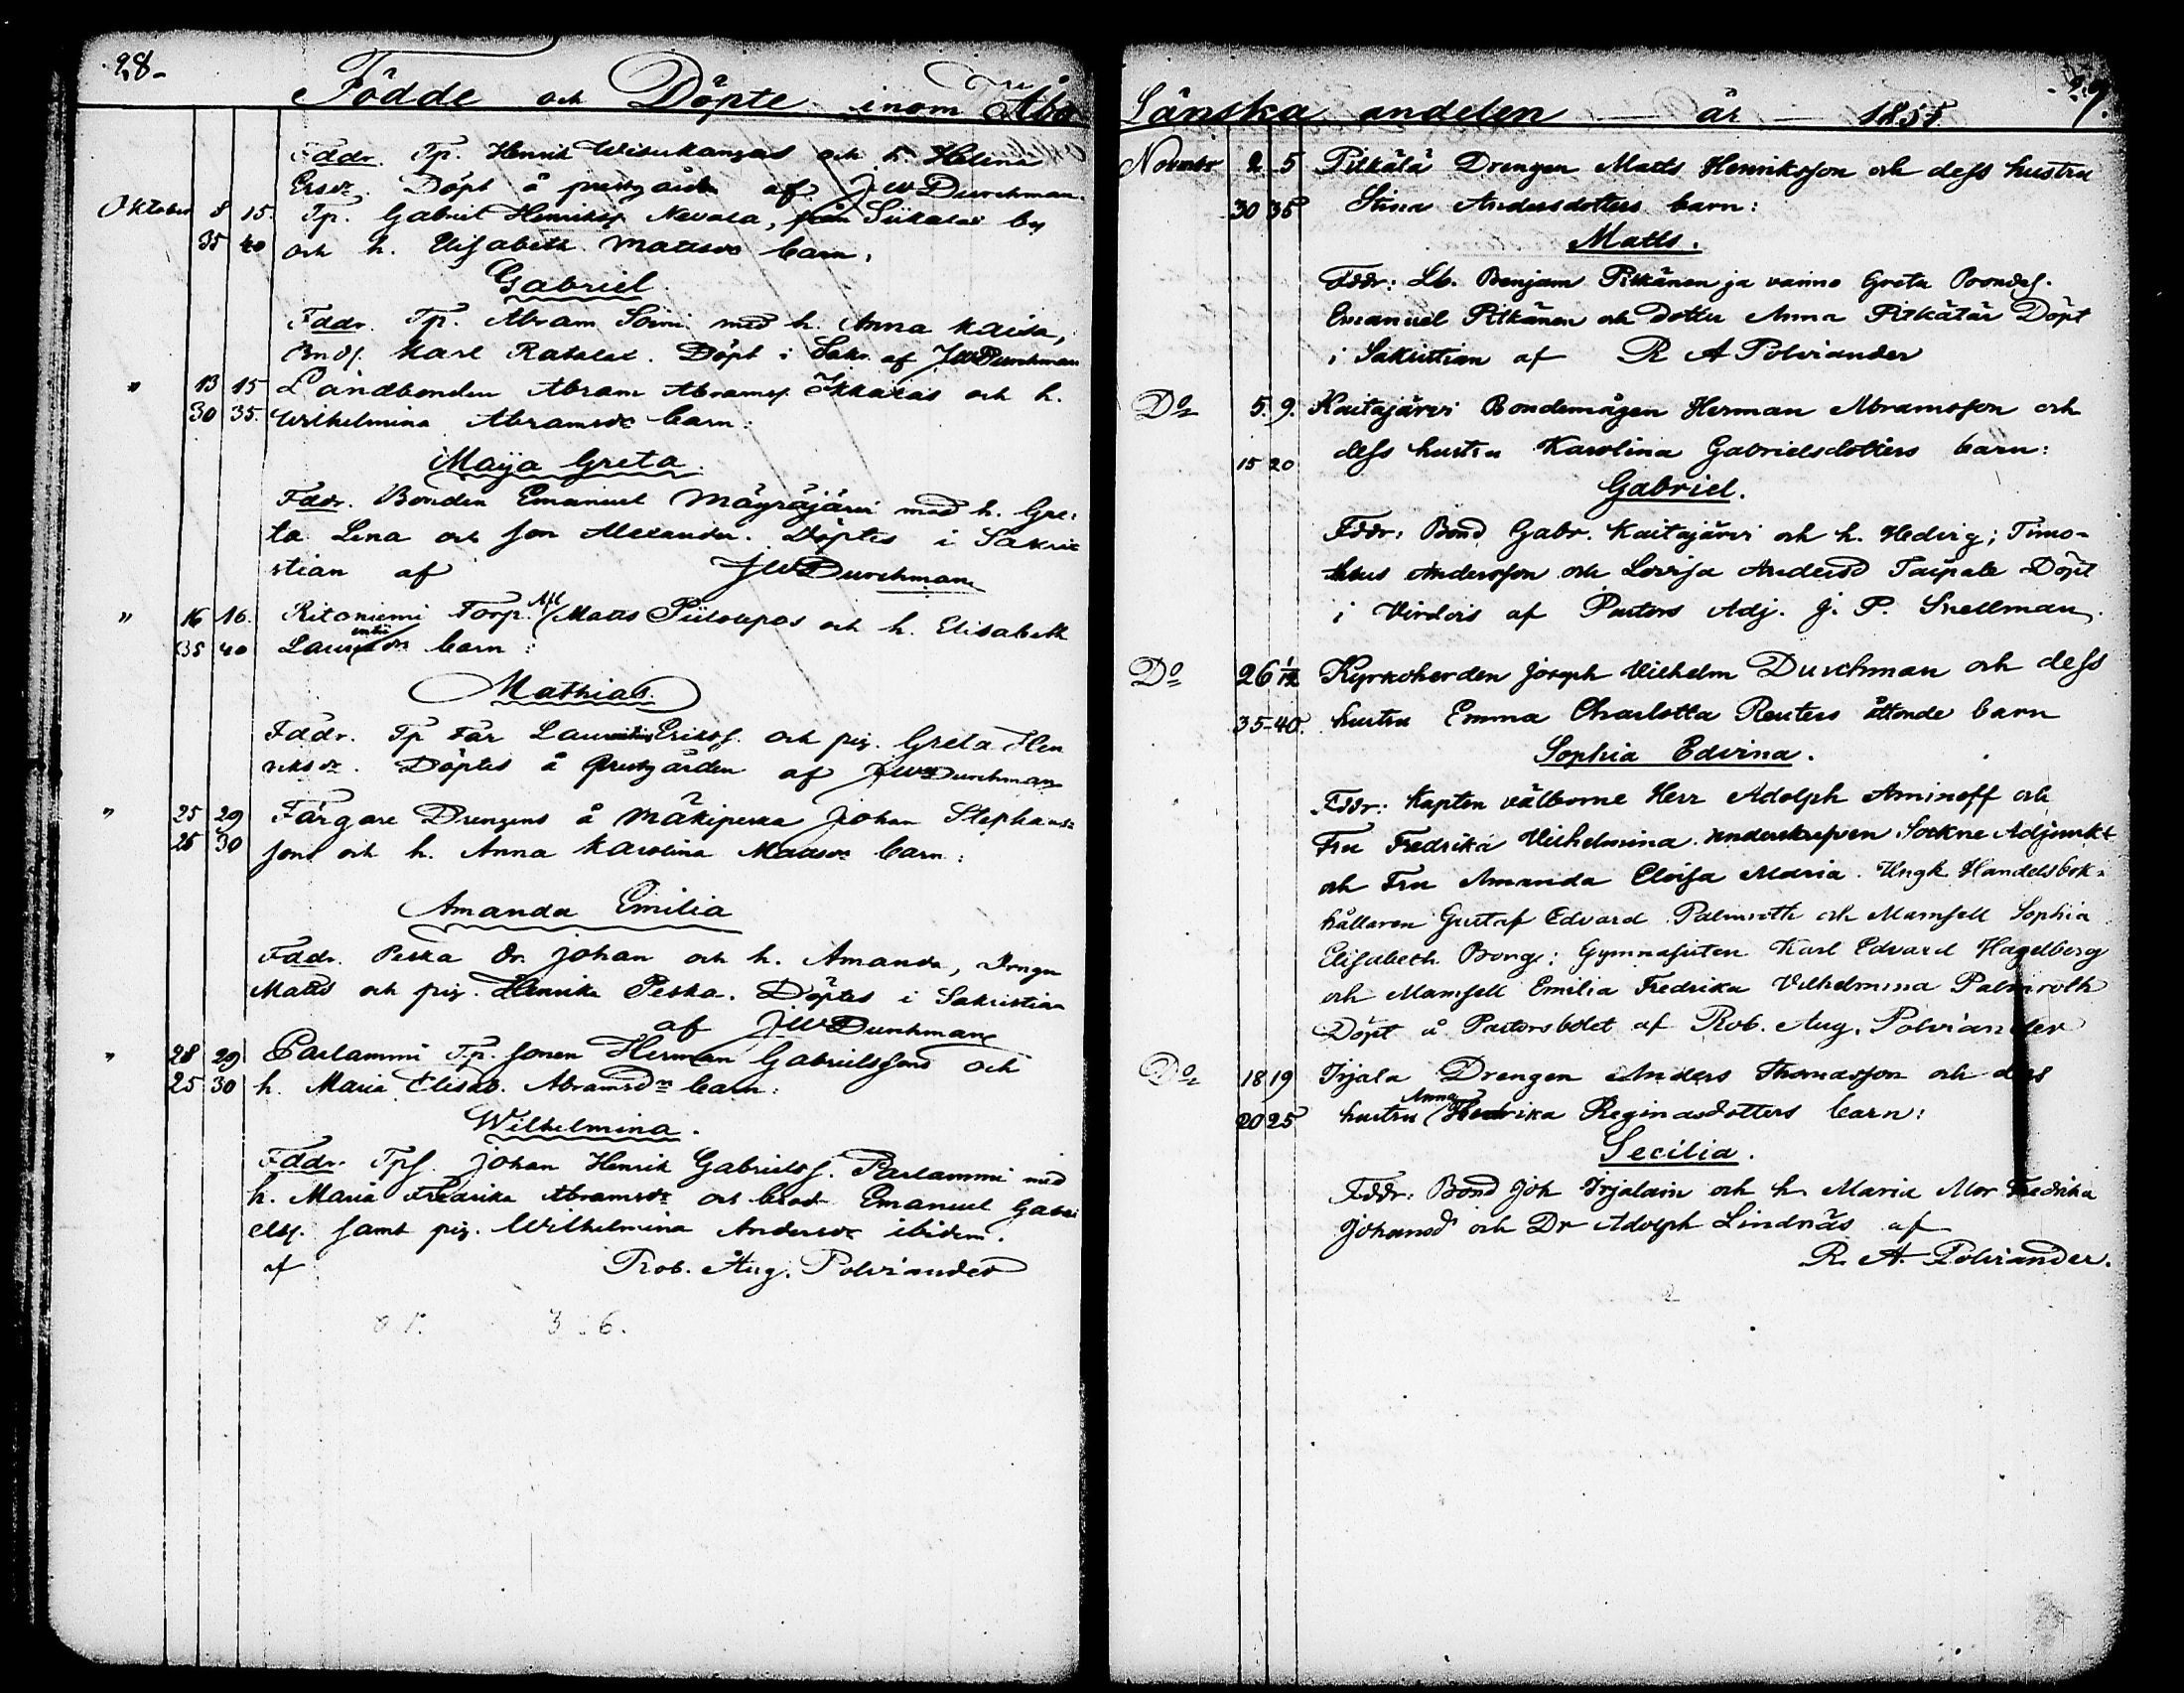 28.
Födde och Döpte inom Åbo
Faddr. Tp. Henrik Wisukangas och h. Helena
Ersdr. Döpt å prestgården af JWDurchman.
Oktober 8 15. Tp. Gabriel Henrikss. Nevala, från Siikalas by
35 40 och h. Elisabeth Mattsdr barn.
Gabriel.
Faddr. Tp. Abram Soini med h. Anna Kaisa,
Bnds. Karl Ratalai. Döpt i Sakr. af JWDurchman
" 13 15 Landbonden Abram Abramss. och h.
30 35. Wilhelmina Abramsdr barn:
Maija Greta.
Faddr. Bonden Emanuel Mäyräjärvi med h. Gre-
ta Lena och son Alexander. Döptes i Sakri-
stian af JWDurchman
" 16 16. Ritoniemi Torp. Afl. Matts och h. Elisabeth
35 40 barn:
Mathias.
Faddr. Tp Far Erikss. och pig. Greta Hen
riksdr. Döptes å Prestgården af JWDurchman
" 25 29 Färgare Drengens å Mäkipeska Johan Stephans-
25 30 sons och h. Anna Karolina Mattsdr barn:
Amanda Emilia
Faddr. Peska Dr. Johan och h. Amanda, Drengen
Matts och pig. Henrika Peska. Döptes i Sakristian
af JWDurchman
" 28 29 Parlammi Tp. sonen Herman Gabrielssons och
25 30 h. Maria Elisab. Abramsdrs barn:
Wilhelmina.
Faddr. Tps. Johan Henrik Gabrielss. Parlammi med
h. Maria Fredrika Abramsdr och brodr Emanuel Gabri
elss. samt pig. Wilhelmina Andersdr ibidem.
af Rob. Aug. Polviander
3 . 6.
29.
Länska andelen — år — 1855.
Novembr 2 5 Pitkälä Drengen Matts Henriksson och dess hustru
30 35 Stina Andersdotters barn:
Matts.
Fddr: Lb. Benjam Pitkänen ja vaimo Greta Bondes.
Emanuel Pitkänen och dotter Anna Pitkälä Döpt
i Sakristian af R A Polviander
Do 5. 9. Kaitajärvi Bondemågen Herman Abramsson och
15 20 dess hustru Karolina Gabrielsdotters barn:
Gabriel.
Fddr: Bond Gabr. Kaitajärvi och h. Hedvig; Timo-
theus Andersson och Lovisa Andersd Taipale Döpt
i Virdois af Pastors Adj. J. P. Snellman
Do 26 1/12 Kyrkoherden Joseph Vilhelm Durchman och dess
35-40. hustru Emma Charlotta Reuters åttonde barn
Sophia Edvina.
Fddr: Kapten välborne Herr Adolph Amineff och
Fru Fredrika Vilhelmina. underskrefven Sockne Adjunkt
och Fru Amanda Eloisa Maria. Ungk. Handelsbok-
hållaren Gustaf Edvard Palmroth och Mamsell Sophia
Elisabeth Borg; Gymnasisten Karl Edvard Hagelberg
och Mamsell Emilia Fredrika Vilhelmina Palmroth
Döpt å Pastorsbolet af Rob. Aug. Polviander
Do 18 19 Irjala Drengen Anders Thomasson och dess
20 25 hustru Anna Hedvika Reginasdotters barn:
Secilia.
Fddr: Bond Joh Irjalain och h. Maria Mor Fredrika
Johansd och Dr Adolph Lindnäs af
R. A. Polviander.